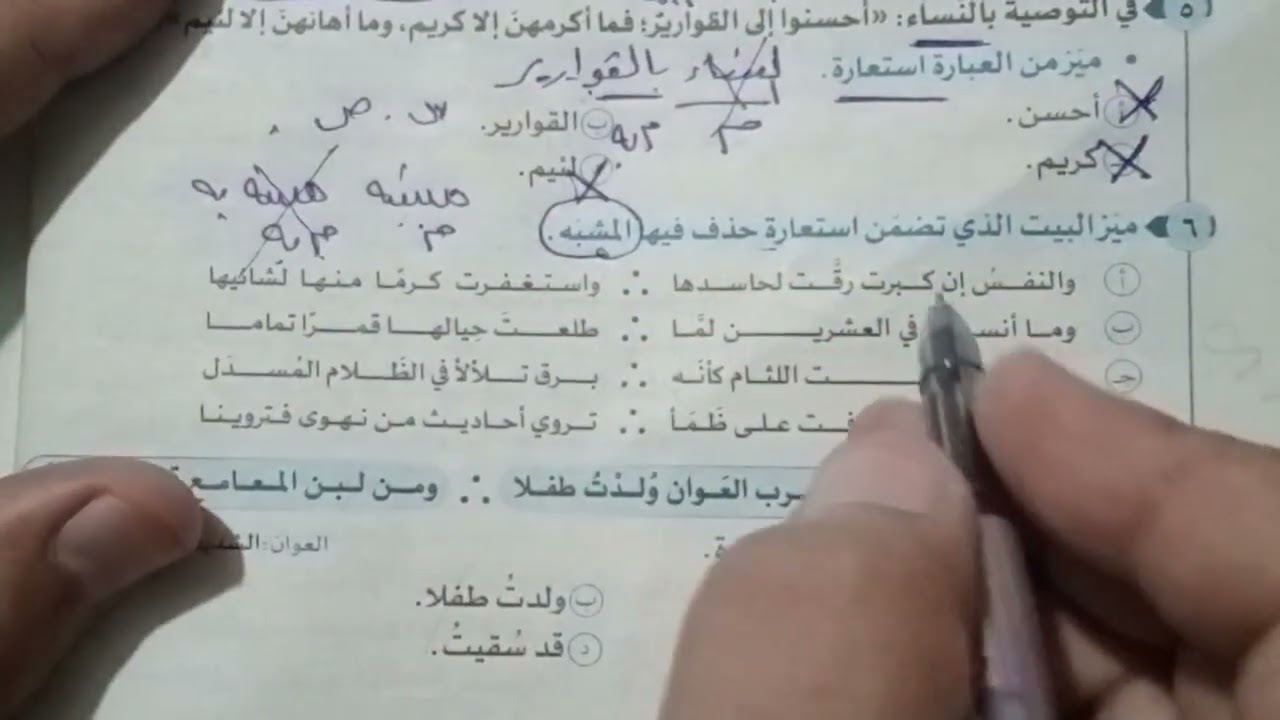 ٥ في التوصية بالنساء: «أحسنوا إلى القوارير؛ فما أكرمهن إلا كريم، وما أهانهن إلا لئيم»
• ميّز من العبارة استعارة.
النساء بالقوارير
أ أحسن.
ب القوارير.
م م به
س . ص .
ج كريم.
لئيم.
مشبه مشبه به
م م به
٦ ميّز البيت الذي تضمّن استعارة حذف فيها المشبه.
أ والنفسُ إن كبرت رقَّت لحاسدها ∴ واستغفرت كرمًا منها لشانيها
ب وما أنس في العشرين لمَّا ∴ طلعتَ حِيالها قمرًا تماما
جـ ت اللثام كأنّه ∴ برق تلألأ في الظلام المُسدَل
فت على ظَمَأ ∴ تروي أحاديث من نهوى فتروينا
رب العَوان وُلدْتُ طفلا ∴ ومن لبن المعامع
العوان:
ة.
ب ولدتُ طفلا.
د قد سُقيتُ.